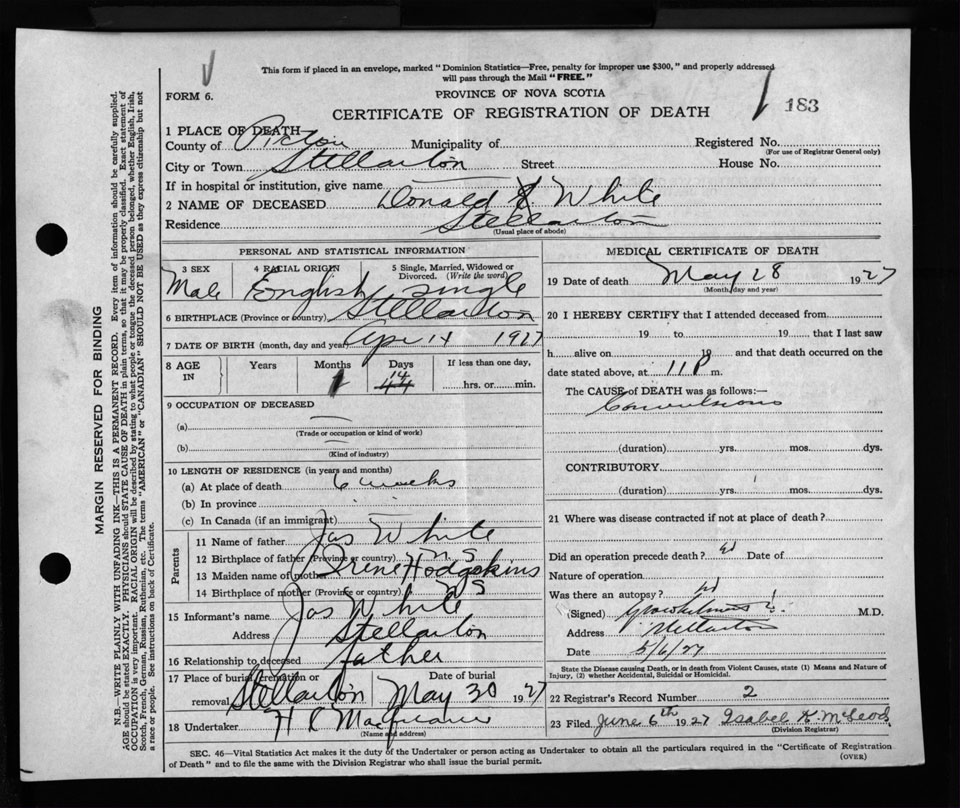 This form if placed in an envelope, marked "Dominion Statistics—Free, penalty for improper use $300," and properly addressed
will pass through the Mail "FREE."
FORM 6.
PROVINCE OF NOVA SCOTIA
CERTIFICATE OF REGISTRATION OF DEATH
183
1 PLACE OF DEATH—
County of Pictou Municipality of Registered No.
(For use of Registrar General only)
City or Town Stellarton Street House No.
If in hospital or institution, give name
2 NAME OF DECEASED Donald White
Residence Stellarton
(Usual place of abode)
MARGIN RESERVED FOR BINDING
N.B.—WRITE PLAINLY WITH UNFADING INK—THIS IS A PERMANENT RECORD. Every item of information should be carefully supplied.
AGE should be stated EXACTLY. PHYSICIANS should STATE CAUSE OF DEATH in plain terms, so that it may be properly classified. Exact statement of
OCCUPATION is very important. RACIAL ORIGIN will be described by stating to what people or tongue the deceased person belonged, whether English, Irish,
Scotch, French, German, Russian, Ruthenian, etc. The terms "AMERICAN" or "CANADIAN" SHOULD NOT BE USED as they express citizenship but not
a race or people. See instructions on back of Certificate.
PERSONAL AND STATISTICAL INFORMATION
3 SEX 4 RACIAL ORIGIN 5 Single, Married, Widowed or
Divorced. (Write the word)
Male English Single
6 BIRTHPLACE (Province or country) Stellarton
7 DATE OF BIRTH (month, day and year) Apr 14 1927
8 AGE
IN
Years Months Days If less than one day,
1 14
44 hrs. or min.
9 OCCUPATION OF DECEASED
(a)
(Trade or occupation or kind of work)
(b)
(Kind of industry)
10 LENGTH OF RESIDENCE (in years and months)
(a) At place of death 6 weeks
(b) In province
(c) In Canada (if an immigrant)
Parents
11 Name of father Jas White
12 Birthplace of father (Province or country) N.S
13 Maiden name of mother Irene Hodgskins
14 Birthplace of mother (Province or country) N S
15 Informant's name Jas White
Address Stellarton
16 Relationship to deceased father
17 Place of burial, cremation or Date of burial
removal Stellarton May 30 1927
18 Undertaker H R
(Name and address)
MEDICAL CERTIFICATE OF DEATH
19 Date of death May 28 1927
(Month, day and year)
20 I HEREBY CERTIFY that I attended deceased from
19 to 19 that I last saw
h alive on 19 and that death occurred on the
date stated above, at 11 P m.
The CAUSE of DEATH was as follows:—
Convulsions
(duration) yrs. mos. dys.
CONTRIBUTORY
(duration) yrs. mos. dys.
21 Where was disease contracted if not at place of death?
Did an operation precede death? Date of
Nature of operation
Was there an autopsy?
(Signed) M.D.
Address Stellarton
Date 5/6/27
State the Disease causing Death, or in death from Violent Causes, state (1) Means and Nature of
Injury, (2) whether Accidental, Suicidal or Homicidal.
22 Registrar's Record Number 2
23 Filed June 6th 1927 Isabel K McLeod
(Division Registrar)
SEC. 46—Vital Statistics Act makes it the duty of the Undertaker or person acting as Undertaker to obtain all the particulars required in the "Certificate of Registration
of Death" and to file the same with the Division Registrar who shall issue the burial permit.
(OVER)